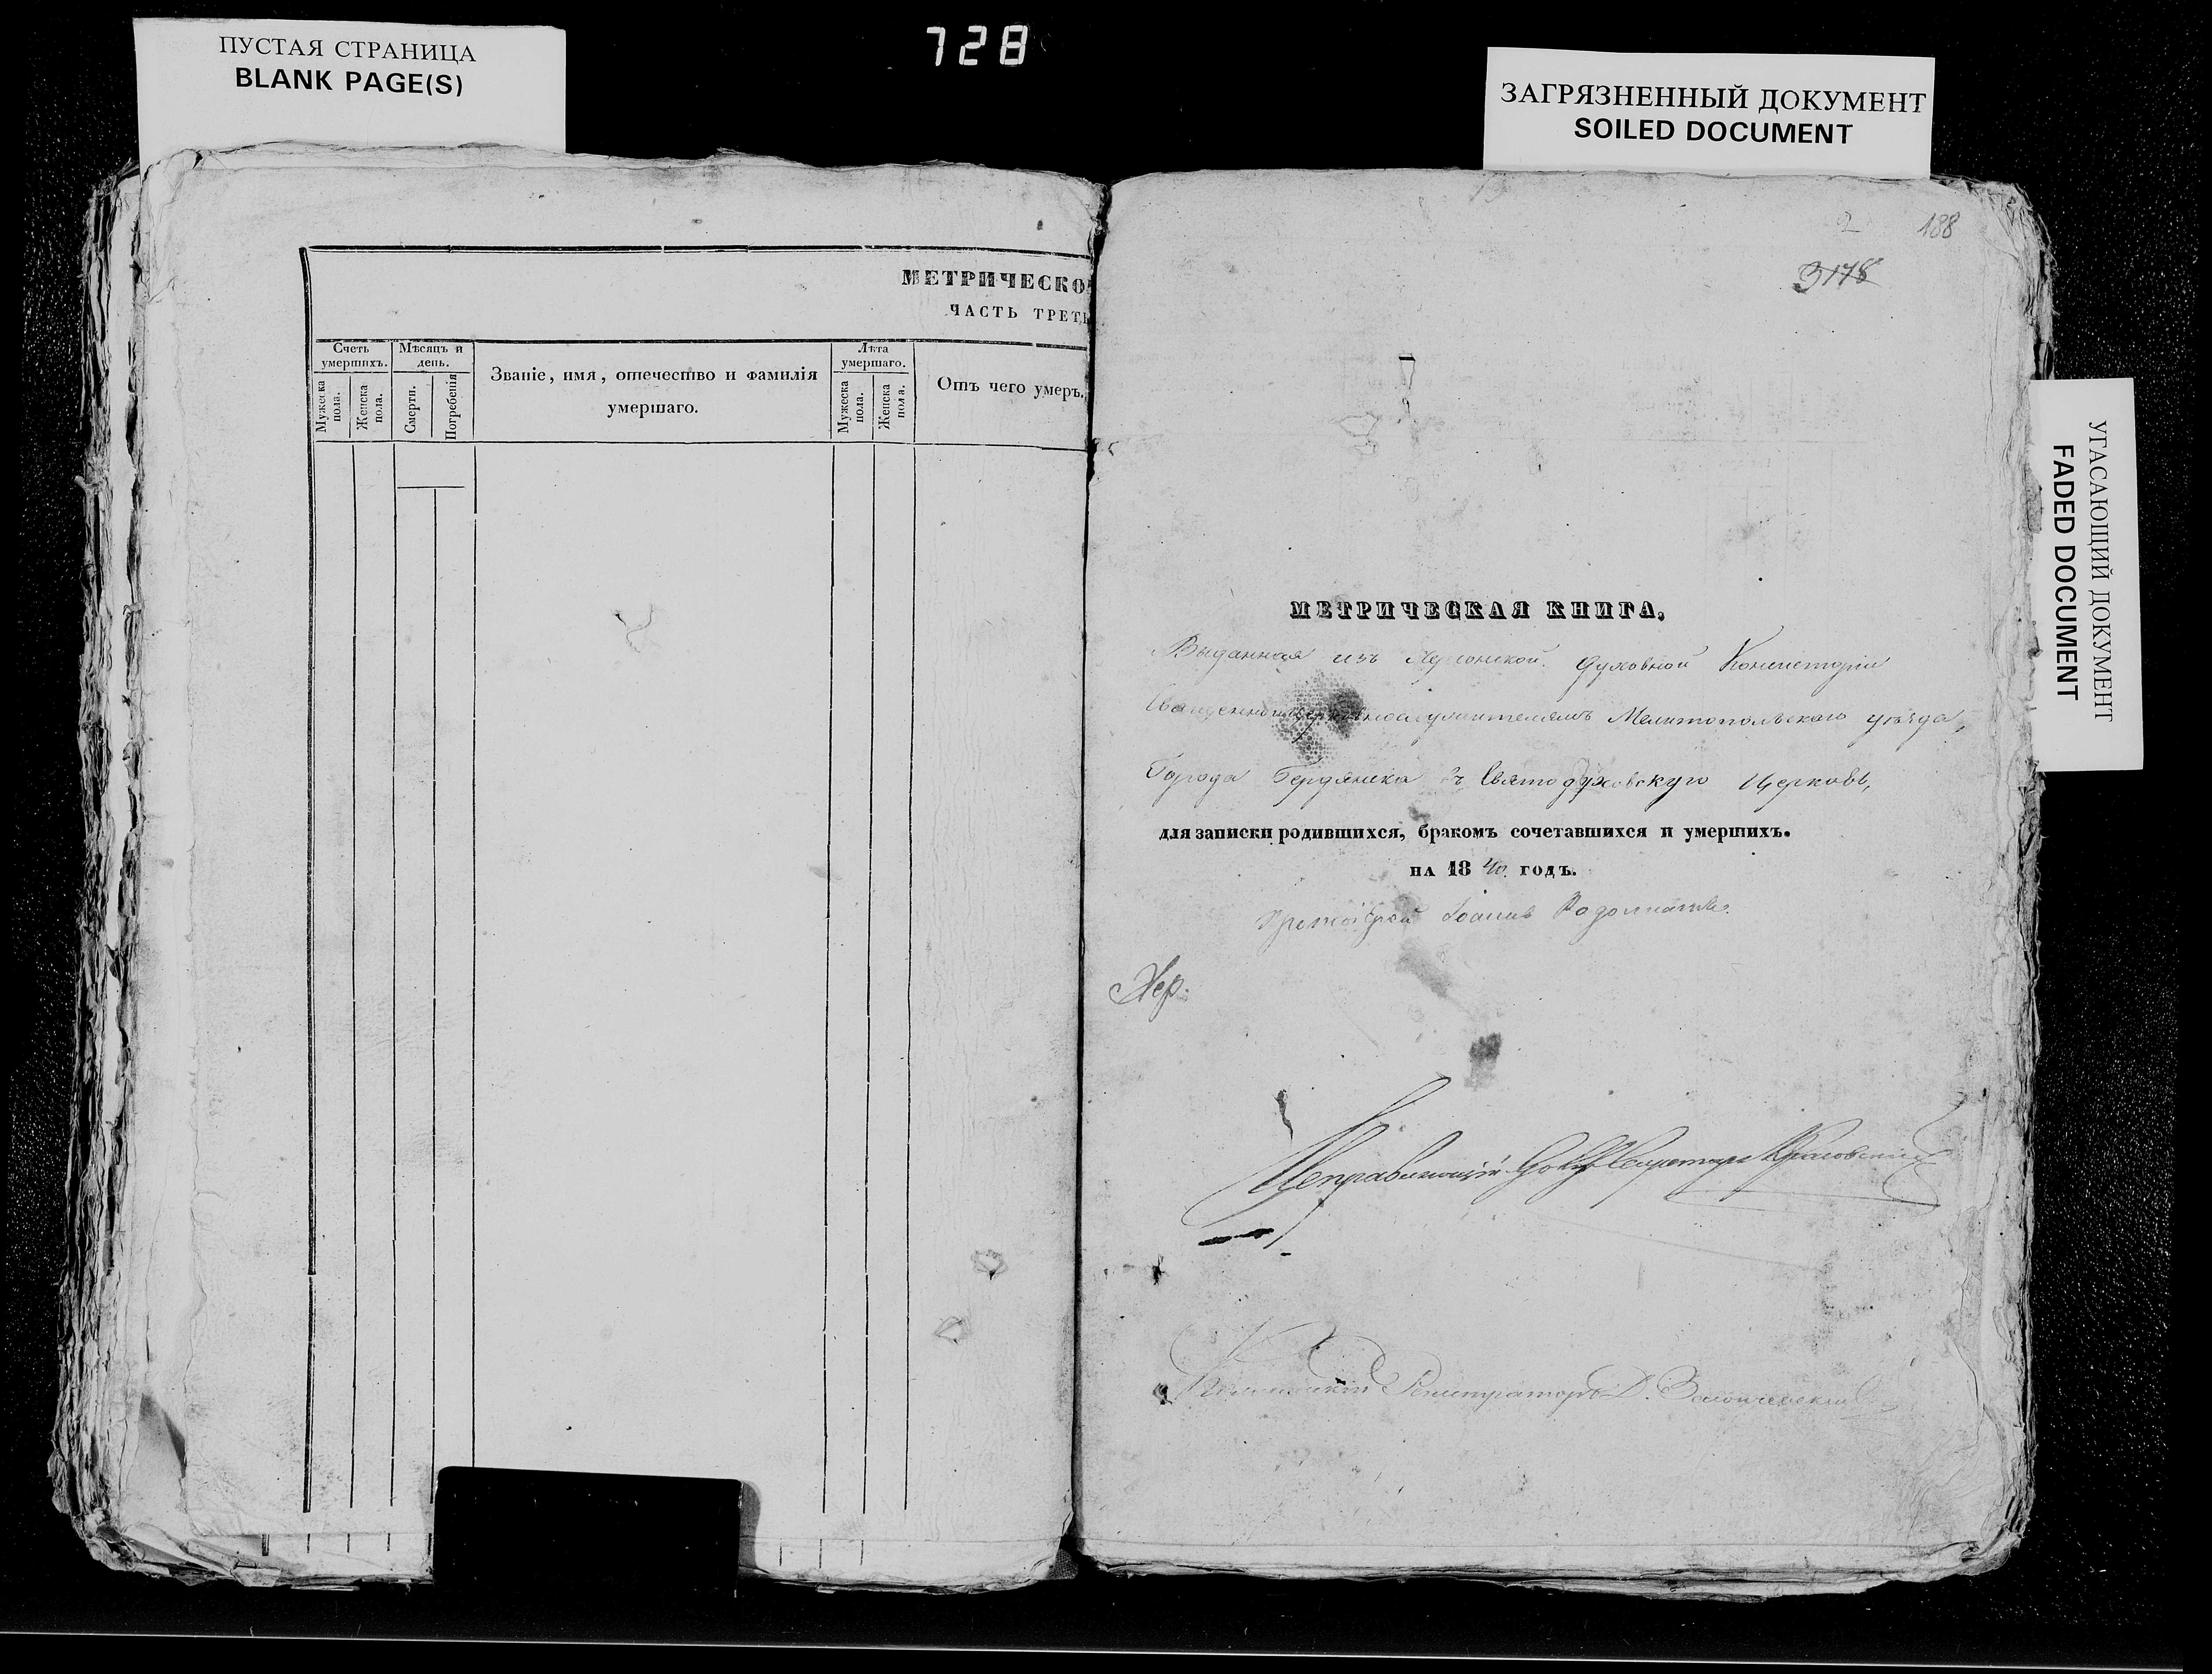 ПУСТАЯ СТРАНИЦА
BLANK PAGE(S)
728
ЗАГРЯЗНЕННЫЙ ДОКУМЕНТ
SOILED DOCUMENT
УГАСАЮЩИЙ ДОКУМЕНТ
FADED DOCUMENT
МЕТРИЧЕСКО
ЧАСТЬ ТРЕТЬ
Счетъ умершихъ.
Мужеска пола.
Женска пола.
Мѣсяцъ и день.
Смерти.
Погребенія
Званіе, имя, отечество и фамилія
умершаго.
Лѣта умершаго.
Мужеска пола.
Женска пола.
Отъ чего умеръ.
2 188
3178
МЕТРИЧЕСКАЯ КНИГА,
Выданная изъ Херсонской Духовной Консисторіи
Мелитопольскаго уѣзда,
Города Бердянска въ Святодуховскую Церковь,
для записки родившихся, бракомъ сочетавшихся и умершихъ.
на 1840 годъ.
Протоіерей Іоаннъ
Хер.
Секретарь
Регистраторъ